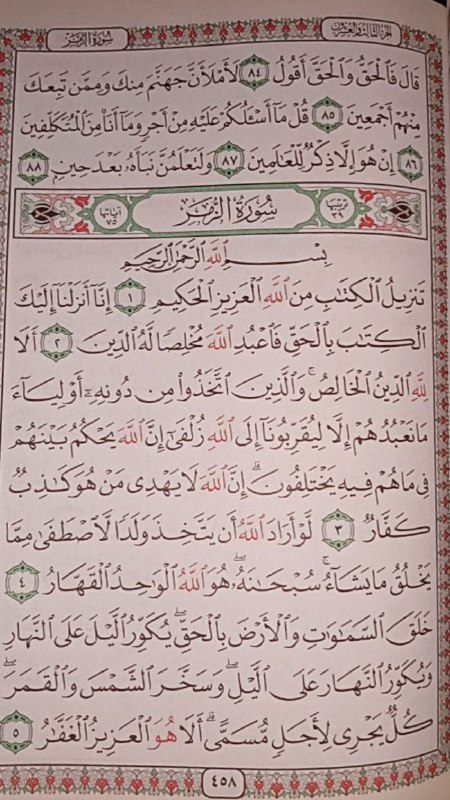 الجزء الثالث والعشرون
سورة الزمر
قَالَ فَالْحَقُّ وَالْحَقَّ أَقُولُ ٨٤ لَأَمْلَأَنَّ جَهَنَّمَ مِنكَ وَمِمَّن تَبِعَكَ
مِنْهُمْ أَجْمَعِينَ ٨٥ قُلْ مَا أَسْـَٔلُكُمْ عَلَيْهِ مِنْ أَجْرٍ وَمَا أَنَا۠ مِنَ الْمُتَكَلِّفِينَ
٨٦ إِنْ هُوَ إِلَّا ذِكْرٌ لِّلْعَٰلَمِينَ ٨٧ وَلَتَعْلَمُنَّ نَبَأَهُۥ بَعْدَ حِينٍۭ ٨٨
ترتيبها ٣٩ سُورَةُ الزُّمَرِ آياتها ٧٥
بِسْمِ اللَّهِ الرَّحْمَٰنِ الرَّحِيمِ
تَنزِيلُ الْكِتَٰبِ مِنَ اللَّهِ الْعَزِيزِ الْحَكِيمِ ١ إِنَّا أَنزَلْنَا إِلَيْكَ
الْكِتَٰبَ بِالْحَقِّ فَاعْبُدِ اللَّهَ مُخْلِصًا لَّهُ الدِّينَ ٢ أَلَا
لِلَّهِ الدِّينُ الْخَالِصُ ۚ وَالَّذِينَ اتَّخَذُوا۟ مِن دُونِهِۦٓ أَوْلِيَآءَ
مَا نَعْبُدُهُمْ إِلَّا لِيُقَرِّبُونَآ إِلَى اللَّهِ زُلْفَىٰٓ إِنَّ اللَّهَ يَحْكُمُ بَيْنَهُمْ
فِى مَا هُمْ فِيهِ يَخْتَلِفُونَ ۗ إِنَّ اللَّهَ لَا يَهْدِى مَنْ هُوَ كَٰذِبٌ
كَفَّارٌ ٣ لَّوْ أَرَادَ اللَّهُ أَن يَتَّخِذَ وَلَدًا لَّاصْطَفَىٰ مِمَّا
يَخْلُقُ مَا يَشَآءُ ۚ سُبْحَٰنَهُۥ ۖ هُوَ اللَّهُ الْوَٰحِدُ الْقَهَّارُ ٤
خَلَقَ السَّمَٰوَٰتِ وَالْأَرْضَ بِالْحَقِّ ۖ يُكَوِّرُ الَّيْلَ عَلَى النَّهَارِ
وَيُكَوِّرُ النَّهَارَ عَلَى الَّيْلِ ۖ وَسَخَّرَ الشَّمْسَ وَالْقَمَرَ ۖ
كُلٌّ يَجْرِى لِأَجَلٍ مُّسَمًّى ۗ أَلَا هُوَ الْعَزِيزُ الْغَفَّٰرُ ٥
٤٥٨